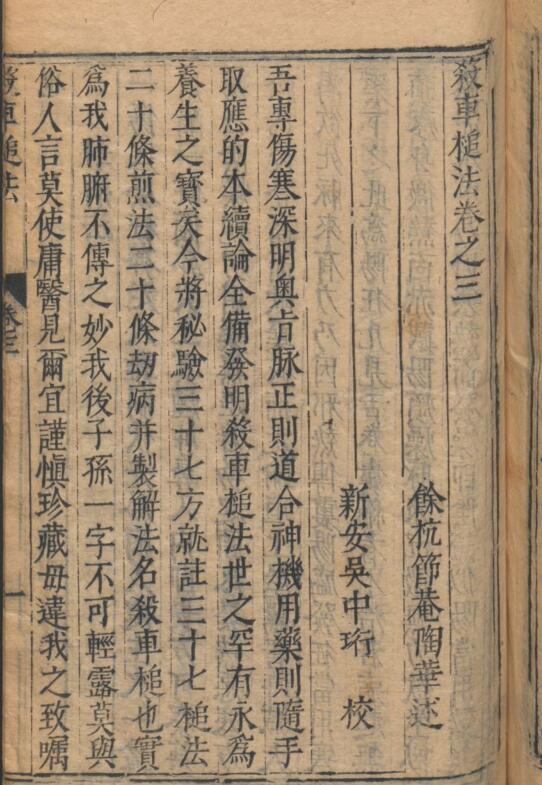 殺車槌法卷之三
餘杭節菴陶華述
新安吳中珩 校
吾專傷寒深明奥㫖脉正則道合神機用藥則隨手
取應的本續論全備發明殺車槌法世之罕有永爲
養生之寳矣今將秘驗三十七方就註三十七槌法
二十條煎法二十條刼病并製解法名殺車槌也實
爲我肺腑不傳之妙我後子孫一字不可輕露莫與
俗人言莫使庸醫見爾宜謹愼珍藏毋違我之致嘱
殺車槌法
卷三
一